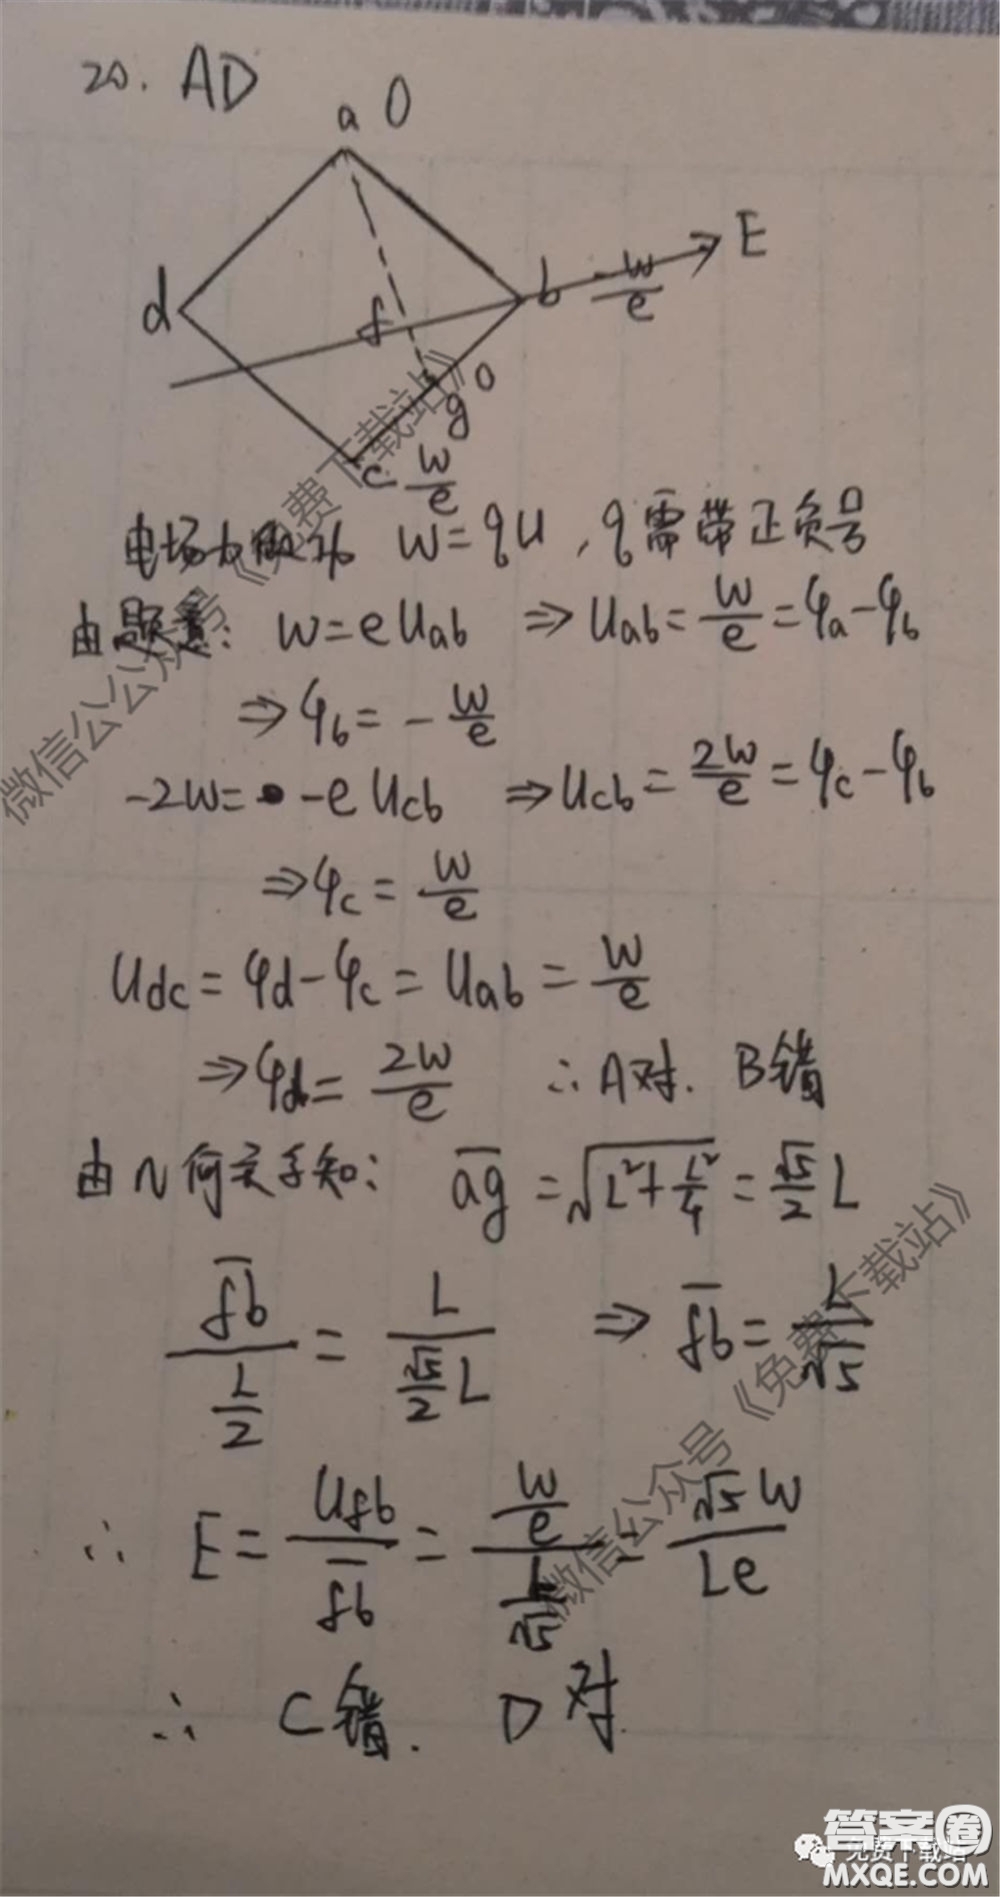 20. AD
a 0
E
d
f
b -W/e
g 0
c W/e
电场力做功 W=qU，q需带正负号
由题意: W=eUab ⇒ Uab=W/e=φa-φb
⇒φb=-W/e
-2W=-eUcb ⇒Ucb=2W/e=φc-φb
⇒φc=W/e
Udc=φd-φc=Uab=W/e
⇒φd=2W/e ∴A对. B错
由几何关系知: ag=√(L²+L²/4)=√5/2 L
fb/(L/2)=L/(√5/2 L) ⇒ fb=L/√5
∴ E=Ufb/fb=(W/e)/(L/√5)=√5W/Le
∴ C错. D对.
微信公众号《免费下载站》
微信公众号《免费下载站》
答案圈
免费下载站
MXQE.COM